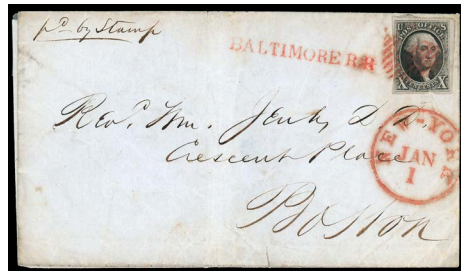 pd by Stamp
BALTIMORE R.R
POST OFFICE
X X
Revd. Wm. Jenks D D.
Crescent Place
Boston
NEW-YORK
JAN
1